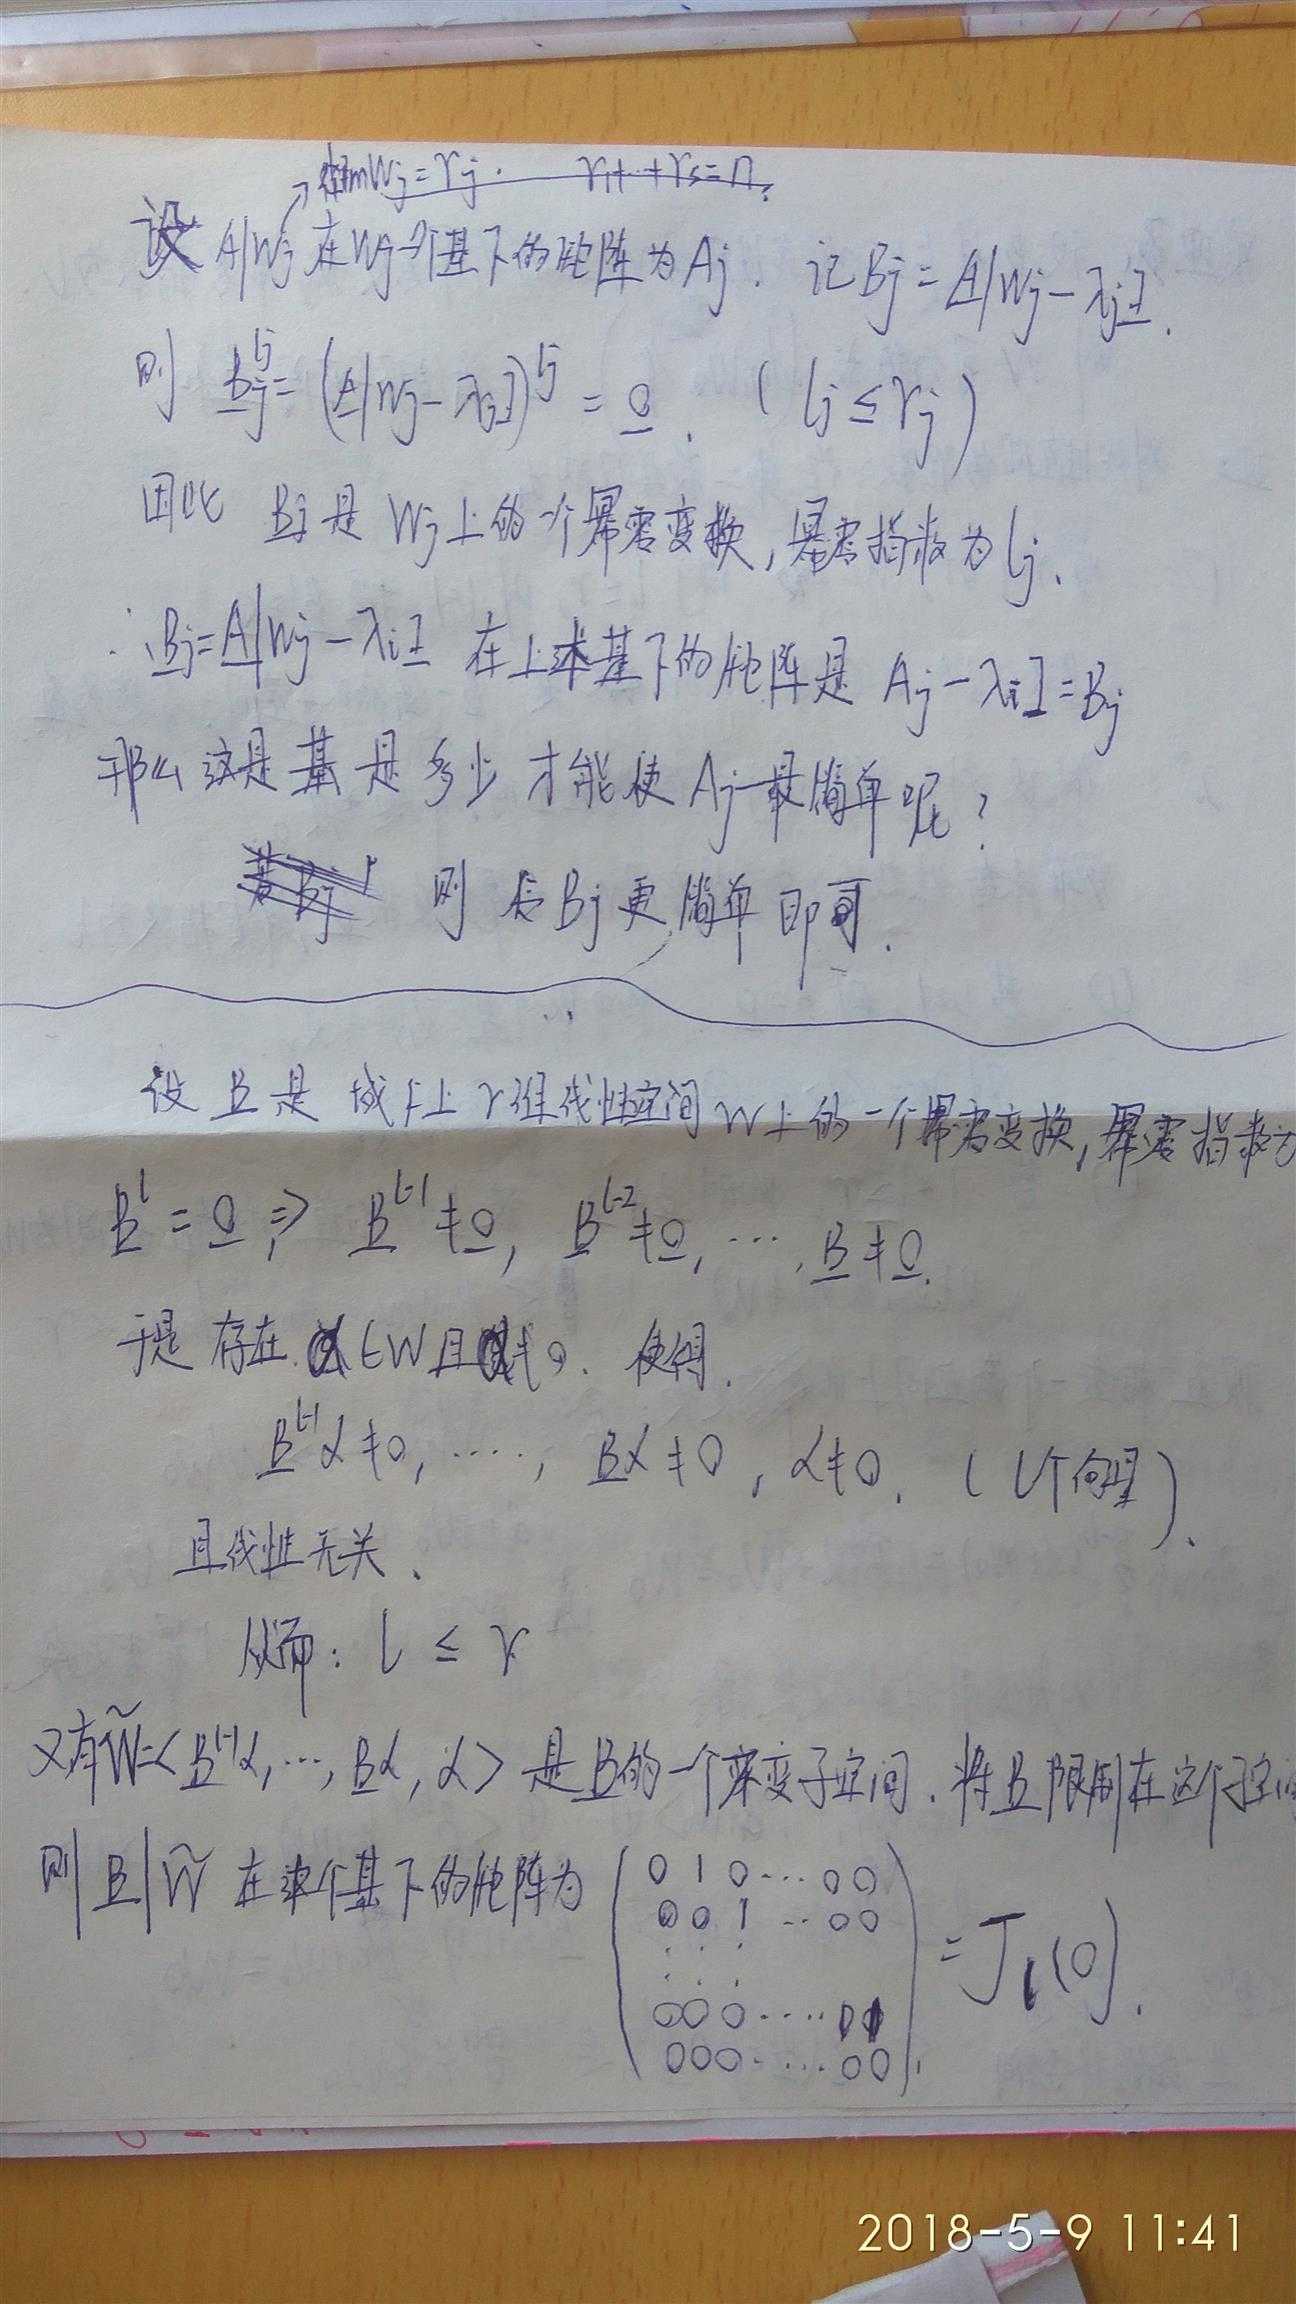 dimWj=rj. r1+…+rs=n.
设 A|Wj 在Wj一个基下的矩阵为Aj. 记Bj=A|Wj-λjI.
则 Bj^lj=(A|Wj-λjI)^lj=0. (lj≤rj)
因此 Bj是Wj上的一个幂零变换,幂零指数为lj.
∴Bj=A|Wj-λiI 在上述基下的矩阵是 Aj-λiI=Bj
那么这是基是多少才能使Aj最简单呢?
则 Bj更简单即可.
设B是域F上r维线性空间W上的一个幂零变换,幂零指数为
B^l=0,⇒ B^(l-1)≠0, B^(l-2)≠0,…,B≠0.
于是存在α∈W且α≠0.使得.
B^(l-1)α≠0,····, Bα≠0, α≠0. (l个向量).
且线性无关.
从而: l≤r
又有W̃=<B^(l-1)α,…,Bα,α>是B的一个不变子空间.将B限制在这个子空间
则B|W̃ 在这个基下的矩阵为
0 1 0 … 0 0
0 0 1 … 0 0
· · ·
· · ·
0 0 0 ···· 0 1
0 0 0 ···· 0 0
=Jl(0).
2018-5-9 11:41